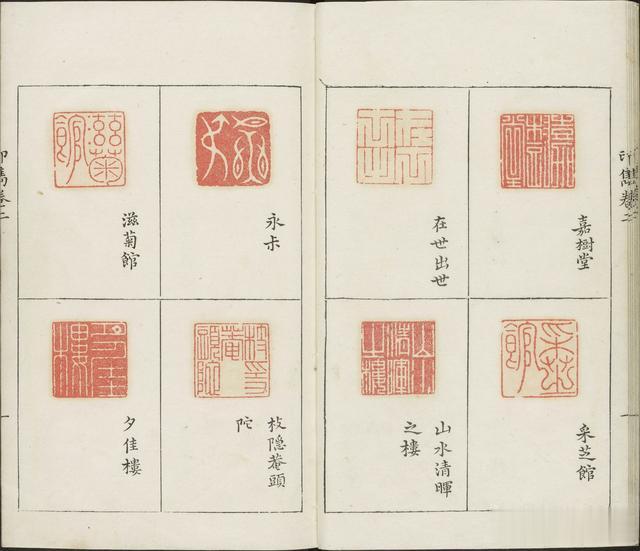 印雋卷二
嘉樹堂
在世出世
采芝館
山水清暉
之樓
永
滋菊館
枝隐菴頭
陀
夕佳樓
印雋卷二